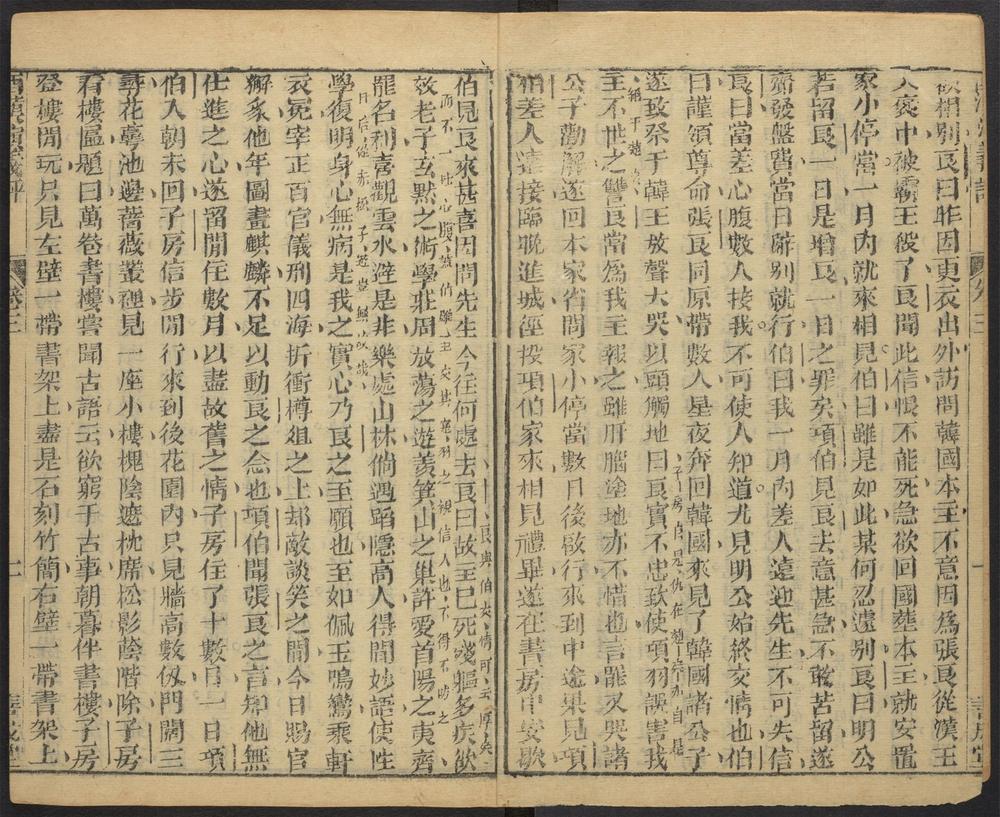 欲相別良曰昨因更衣出外訪問韓國本主不意因爲張良從漢王
入褒中被霸王殺了良聞此信恨不能死急欲回國塟本主就安置
家小停當一月內就來相見伯曰雖是如此某何忍遽別良曰明公
若留良一日是增良一日之罪矣項伯見良去意甚急不敢苦留遂
齎發盤費當日辭別就行伯曰我一月內差人遠迎先生不可失信
良曰當差心腹數人接我不可使人知道尤見明公始終交情也伯
曰謹領尊命張良同原帶數人星夜奔回韓國來見了韓國諸公子
遂致祭于韓王放聲大哭以頭觸地曰良實不忠致使項羽誤害我
主不世之讐良當爲我主報之雖肝腦塗地亦不惜也言罷又哭諸
公子勸解遂回本家省問家小停當數日後欲行來到中途果見項
伯差人遠接臨晚進城徑投項伯家來相見禮畢遂在書房中安歇
伯見良來甚喜因問先生今往何處去良曰故主已死殘軀多疾欲
效老子玄默之術學莊周放蕩之遊羨箕山之巢許愛首陽之夷齊
罷名利喜觀雲水避是非樂處山林倘遇蹈隱高人得聞妙語使性
學復明身心無病是我之實心乃良之至願也至如佩玉鳴鸞乘軒
衣冕宰正百官儀刑四海折衝樽俎之上却敵談笑之間今日賜官
獬豸他年圖畫麒麟不足以動良之念也項伯聞張良之言知他無
仕進之心遂留閒住數月以盡故舊之情子房住了十數日一日項
伯入朝未回子房信步閒行來到後花園內只見牆高數仭門闊三
尋花臺池邊薔薇叢裡見一座小樓槐陰遮枕席松影蔭階除子房
看樓匾題曰萬卷書樓嘗聞古語云欲窮千古事朝暮伴書樓子房
登樓閒玩只見左壁一帶書架上盡是石刻竹簡右壁一帶書架上